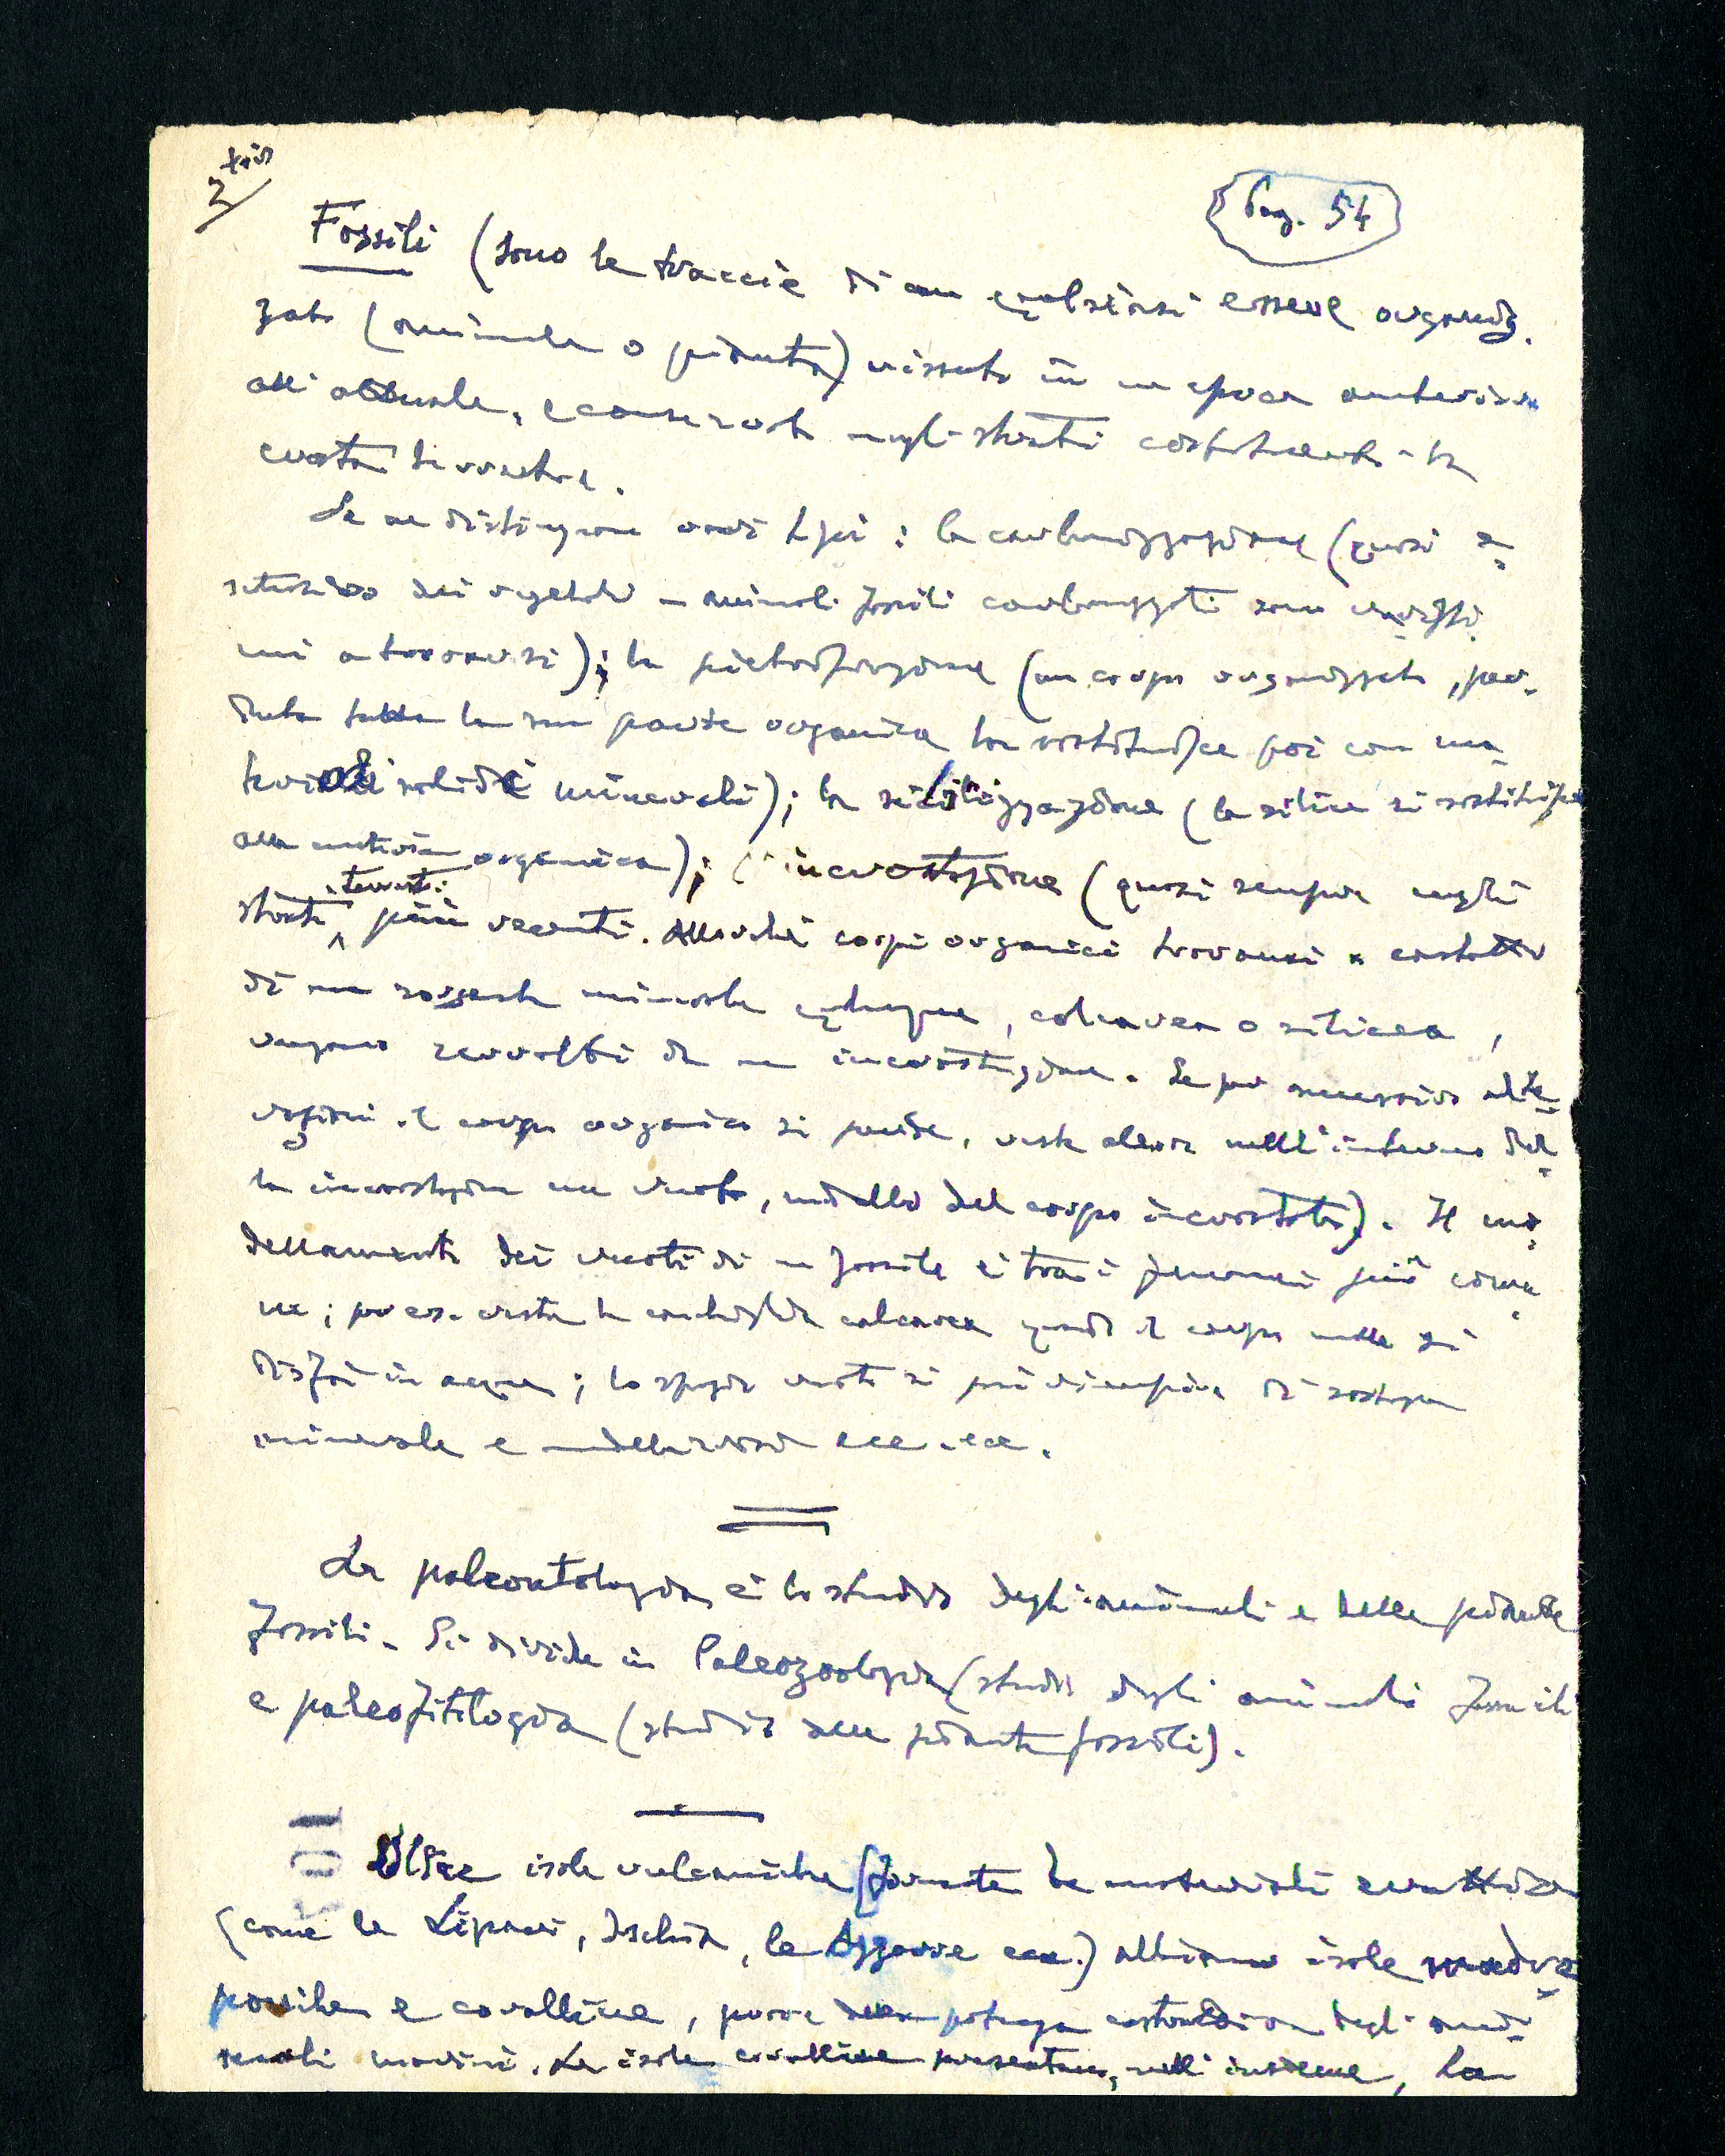 Pag. 54
Fossili (sono le traccie di un qualsiasi essere organiz-
zato (animale o pianta) vissuto in un epoca anteriore
all'attuale, e conservato negli strati costituenti la
crosta terrestre.
Se ne distinguono vari tipi: la carbonizzazione (quasi e-
sclusiva dei vegetali - animali fossili carbonizzati sono rarissi-
mi a trovarsi); la pietrificazione (un corpo organizzato, per-
duta tutta la sua parte organica la sostituisce poi con ma-
teriali solidi minerali); la silicizzazione (la silice si sostituisce
alla materia organica); l'incrostazione (quasi sempre negli
strati terrestri più recenti. Allorché corpi organici trovansi a contatto
di una sorgente minerale qualunque, calcarea o silicea,
vengono ravvolti da una incrostazione. Se per successive alte-
razioni il corpo organico si perde, resta allora nell'interno del-
la incrostazione un vuoto, modello del corpo incrostato). Il mo-
dellamento dei vuoti di un fossile è tra i fenomeni più comu-
ni; per es. resta la conchiglia calcarea quando il corpo molle si
disfà in acqua; lo spazio vuoto si può riempire di sostanza
minerale e modellarvisi ecc. ecc.
La paleontologia è lo studio degli animali e delle piante
fossili. Si divide in Paleozoologia (studio degli animali fossili)
e paleofitologia (studio delle piante fossili).
Oltre isole vulcaniche (formate da materiali eruttivi
(come le Lipari, Ischia, le Azzorre ecc.) abbiamo isole madre-
poriche e coralline, prove della potenza costruttiva degli ani-
mali marini. Le isole coralline presentano, nell'insieme, la